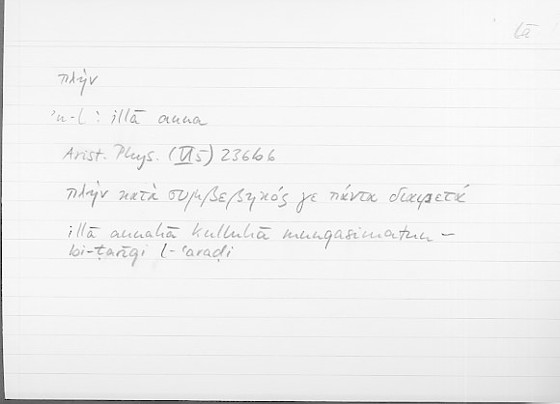 lā
πλήν
ʾn-l : illā anna
Arist. Phys. (VI 5) 236b6
πλὴν κατὰ συμβεβηκός γε πάντα διαιρετά
illā annahā kulluhā munqasimatun –
bi-ṭarīqi l-ʿaraḍi